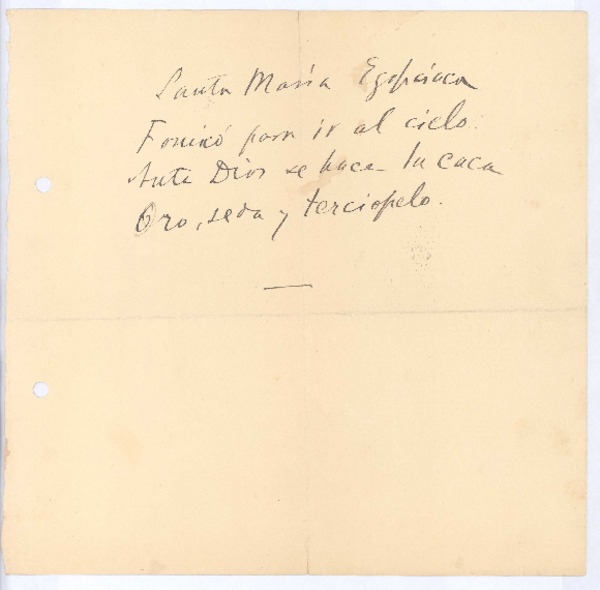 Santa María Egipciaca
Fornicó para ir al cielo.
Ante Dios se hace la caca
Oro, seda y terciopelo.